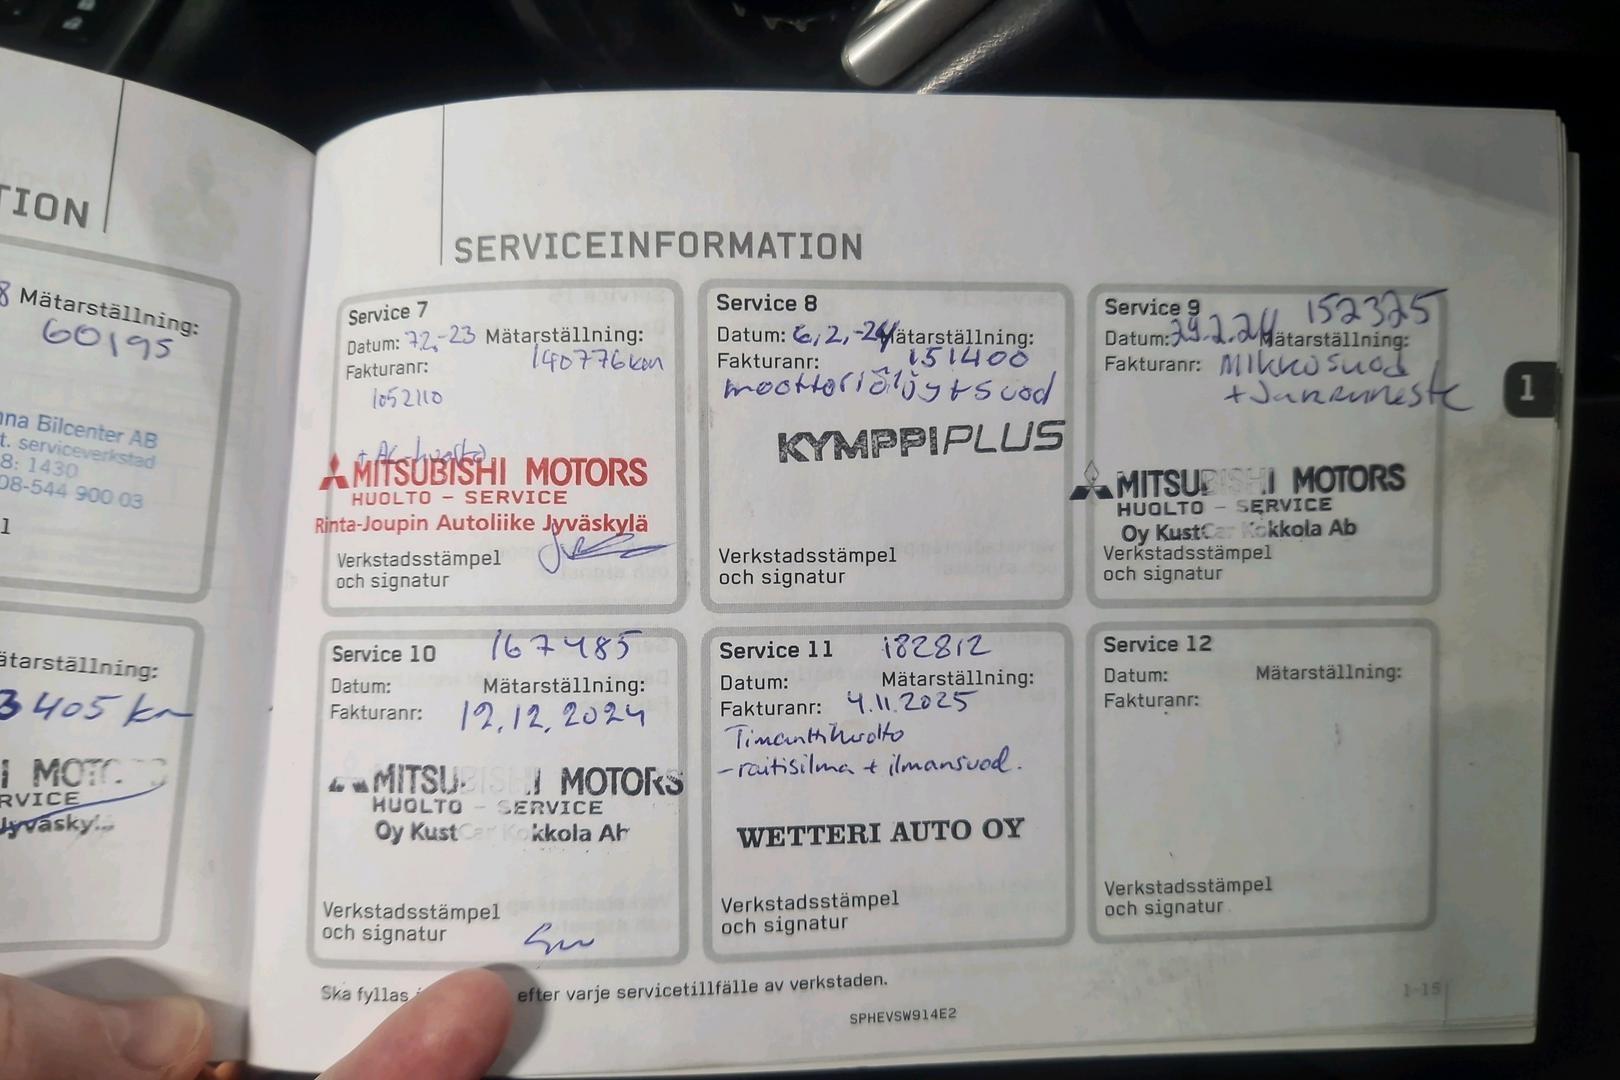 TION
8 Mätarställning:
60195
nna Bilcenter AB
t. serviceverkstad
8: 1430
08-544 900 03
ätarställning:
3405 km
I MOT
RVICE
Jyväsky
SERVICEINFORMATION
Service 7
Datum: 7.2.-23 Mätarställning:
140776km
Fakturanr:
1052110
+ AC-huolto
MITSUBISHI MOTORS
HUOLTO - SERVICE
Rinta-Joupin Autoliike Jyväskylä
Verkstadsstämpel
och signatur
Service 8
Datum: 6,2,-24 Mätarställning:
Fakturanr: 151400
moottoriöljy+suod
KYMPPIPLUS
Verkstadsstämpel
och signatur
Service 9 152325
Datum: 29.2.24 Mätarställning:
Fakturanr: Mikkosuod
+Jarruneste
MITSUBISHI MOTORS
HUOLTO - SERVICE
Oy KustCar Kokkola Ab
Verkstadsstämpel
och signatur
Service 10 167485
Datum: Mätarställning:
Fakturanr: 12.12.2024
MITSUBISHI MOTORS
HUOLTO - SERVICE
Oy KustCar Kokkola Ab
Verkstadsstämpel
och signatur
Service 11 182812
Datum: Mätarställning:
Fakturanr: 4.11.2025
Timanttihuolto
-raitisilma + ilmansuod.
WETTERI AUTO OY
Verkstadsstämpel
och signatur
Service 12
Datum: Mätarställning:
Fakturanr:
Verkstadsstämpel
och signatur
1
Ska fyllas efter varje servicetillfälle av verkstaden.
1-15
SPHEVSW914E2